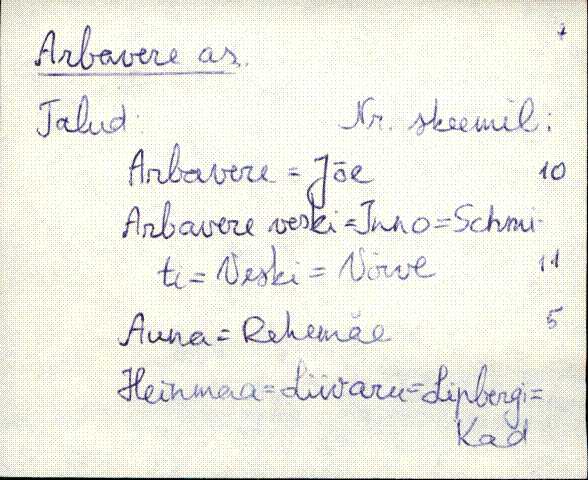 Arbavere as.
Talud: Nr. skeemil:
Arbavere = Jõe 10
Arbavere veski = Inno = Schmi-
ti = Veski = Võrve 11
Auna = Rehemäe 5
Heinmaa = Liivaru = Lipbergi =
Kad